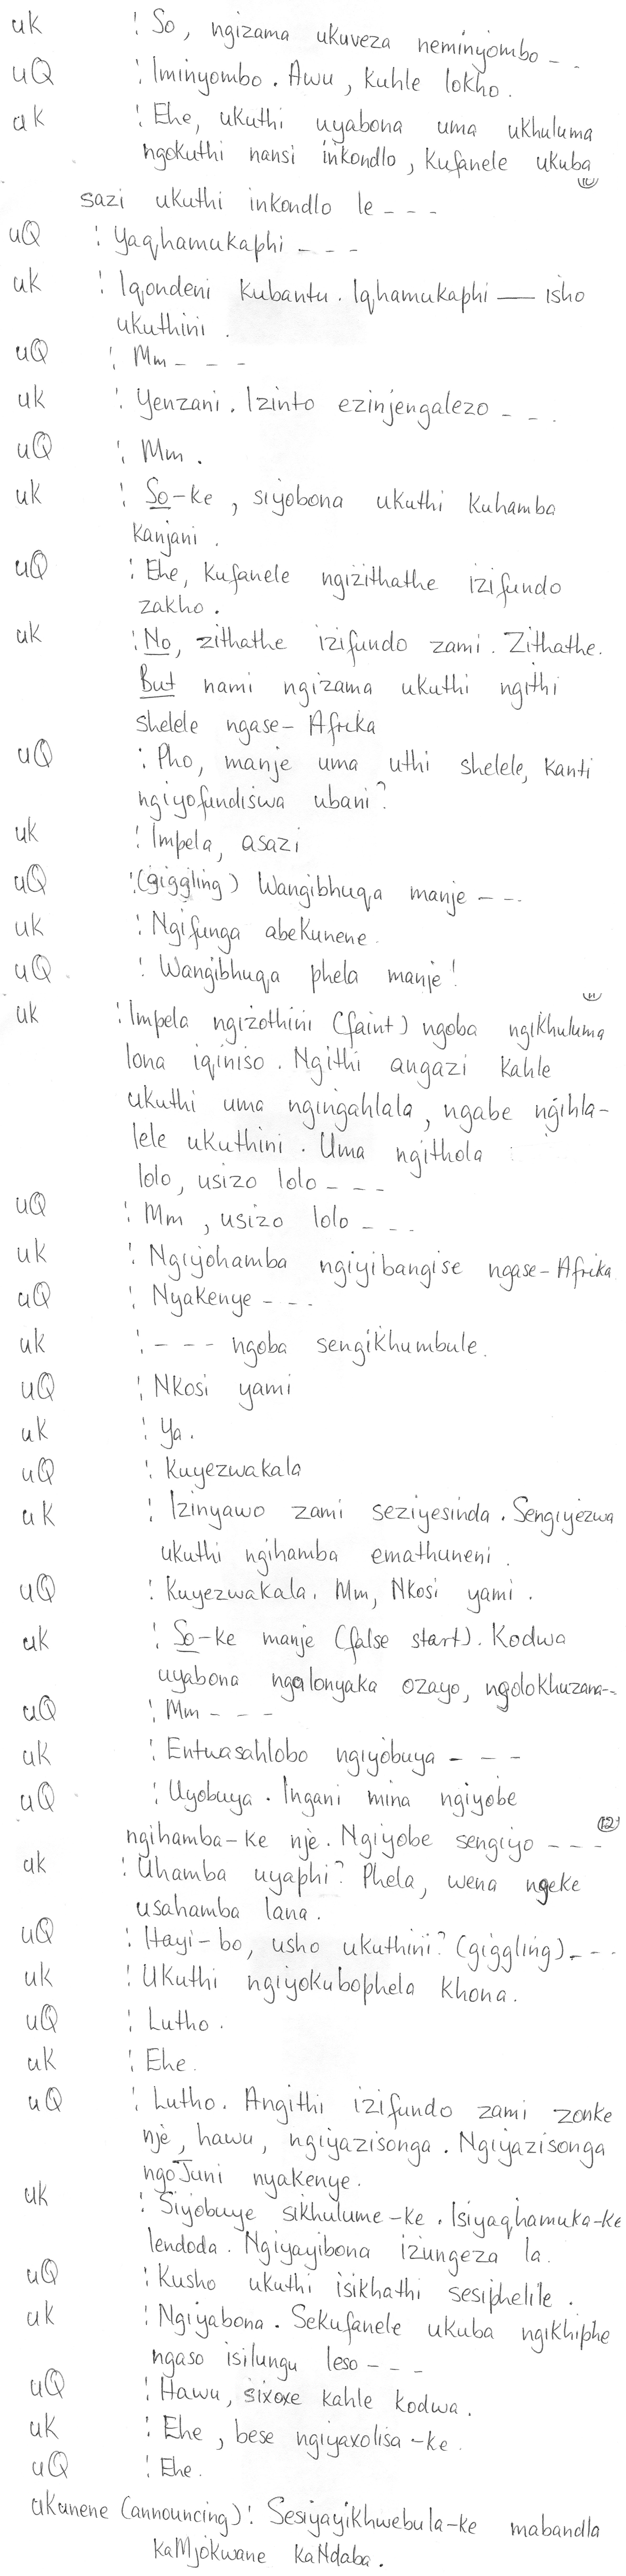 uK : So, ngizama ukuveza neminyombo - -
uQ : Iminyombo. Awu, kuhle lokho.
uK : Ehe, ukuthi uyabona uma ukhuluma
ngokuthi nansi inkondlo, kufanele ukuba
10
sazi ukuthi inkondlo le - - -
uQ : Yaqhamukaphi - - -
uK : Iqondeni kubantu. Iqhamukaphi — isho
ukuthini.
uQ : Mm - - -
uK : Yenzani. Izinto ezinjengalezo - - .
uQ : Mm.
uK : So-ke, siyobona ukuthi kuhamba
kanjani.
uQ : Ehe, kufanele ngizithathe izifundo
zakho.
uK : No, zithathe izifundo zami. Zithathe.
But nami ngizama ukuthi ngithi
shelele ngase-Afrika
uQ : Pho, manje uma uthi shelele, kanti
ngiyofundiswa ubani?
uK : Impela, asazi
uQ : (giggling) Wangibhuqa manje - - .
uK : Ngifunga abeKunene.
uQ : Wangibhuqa phela manje!
11
uK : Impela ngizothini (faint) ngoba ngikhuluma
lona iqiniso. Ngithi angazi kahle
ukuthi uma ngingahlala, ngabe ngihla-
lele ukuthini. Uma ngithola
lolo, usizo lolo - - -
uQ : Mm, usizo lolo - - .
uK : Ngiyohamba ngiyibangise ngase-Afrika
uQ : Nyakenye - - -
uK : - - - ngoba sengikhumbule.
uQ : Nkosi yami
uK : Ya.
uQ : Kuyezwakala
uK : Izinyawo zami seziyesinda. Sengiyezwa
ukuthi ngihamba emathuneni.
uQ : Kuyezwakala. Mm, Nkosi yami.
uK : So-ke manje (false start). Kodwa
uyabona ngalonyaka ozayo, ngolokhuzana--
uQ : Mm - - -
uK : Entwasahlobo ngiyobuya - - -
uQ : Uyobuya. Ingani mina ngiyobe
12
ngihamba-ke nje. Ngiyobe sengiyo - - -
uK : Uhamba uyaphi? Phela, wena ngeke
usahamba lana.
uQ : Hayi-bo, usho ukuthini? (giggling) - - -
uK : Ukuthi ngiyokubophela khona.
uQ : Lutho.
uK : Ehe.
uQ : Lutho. Angithi izifundo zami zonke
nje, hawu, ngiyazisonga. Ngiyazisonga
ngoJuni nyakenye.
uK : Siyobuye sikhulume-ke. Isiyaqhamuka-ke
lendoda. Ngiyayibona izungeza la.
uQ : Kusho ukuthi isikhathi sesiphelile.
uK : Ngiyabona. Sekufanele ukuba ngikhiphe
ngaso isilungu leso - - -
uQ : Hawu, sixoxe kahle kodwa.
uK : Ehe, bese ngiyaxolisa-ke.
uQ : Ehe.
uKunene (announcing) : Sesiyayikhwebula-ke mabandla
kaMjokwane kaNdaba.